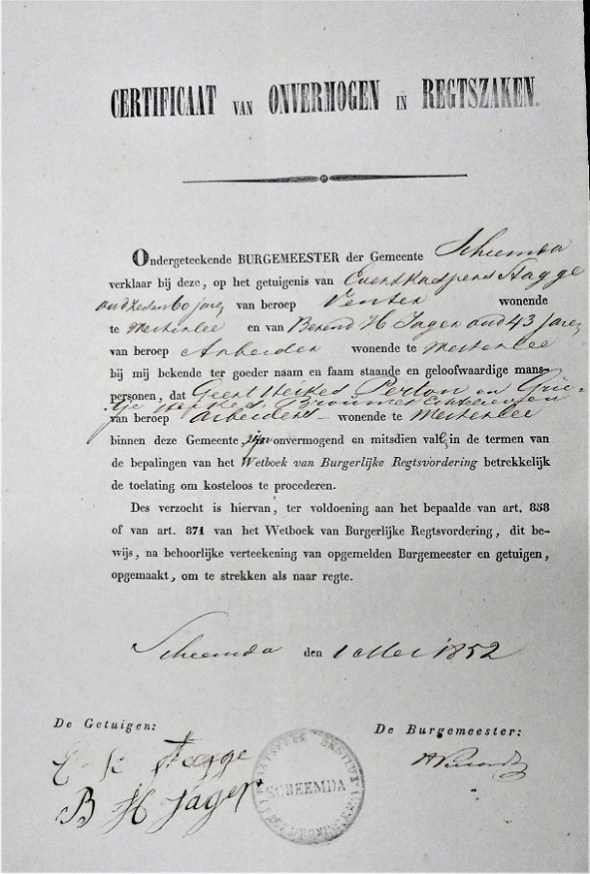 CERTIFICAAT VAN ONVERMOGEN IN REGTSZAKEN.
Ondergeteekende BURGEMEESTER der Gemeente Scheemda
verklaar bij deze, op het getuigenis van Evert Hagge
oud 60 jaren van beroep Venter wonende
te Westerlee en van Berend H Jager oud 43 jaren
van beroep Arbeider wonende te Westerlee
bij mij bekende ter goeder naam en faam staande en geloofwaardige mans-
personen, dat Geert Perton en Grie-
tje Brouwer Echtelieden
van beroep arbeiders wonende te Westerlee
binnen deze Gemeente, zijn onvermogend en mitsdien in de termen van
de bepalingen van het Wetboek van Burgerlijke Regtsvordering betrekkelijk
de toelating om kosteloos te procederen.
Des verzocht is hiervan, ter voldoening aan het bepaalde van art. 858
of van art. 871 van het Wetboek van Burgerlijke Regtsvordering, dit be-
wijs, na behoorlijke verteekening van opgemelden Burgemeester en getuigen,
opgemaakt, om te strekken als naar regte.
Scheemda den 1 Mei 1852
De Getuigen: De Burgemeester:
Hagge
B H Jager
SCHEEMDA